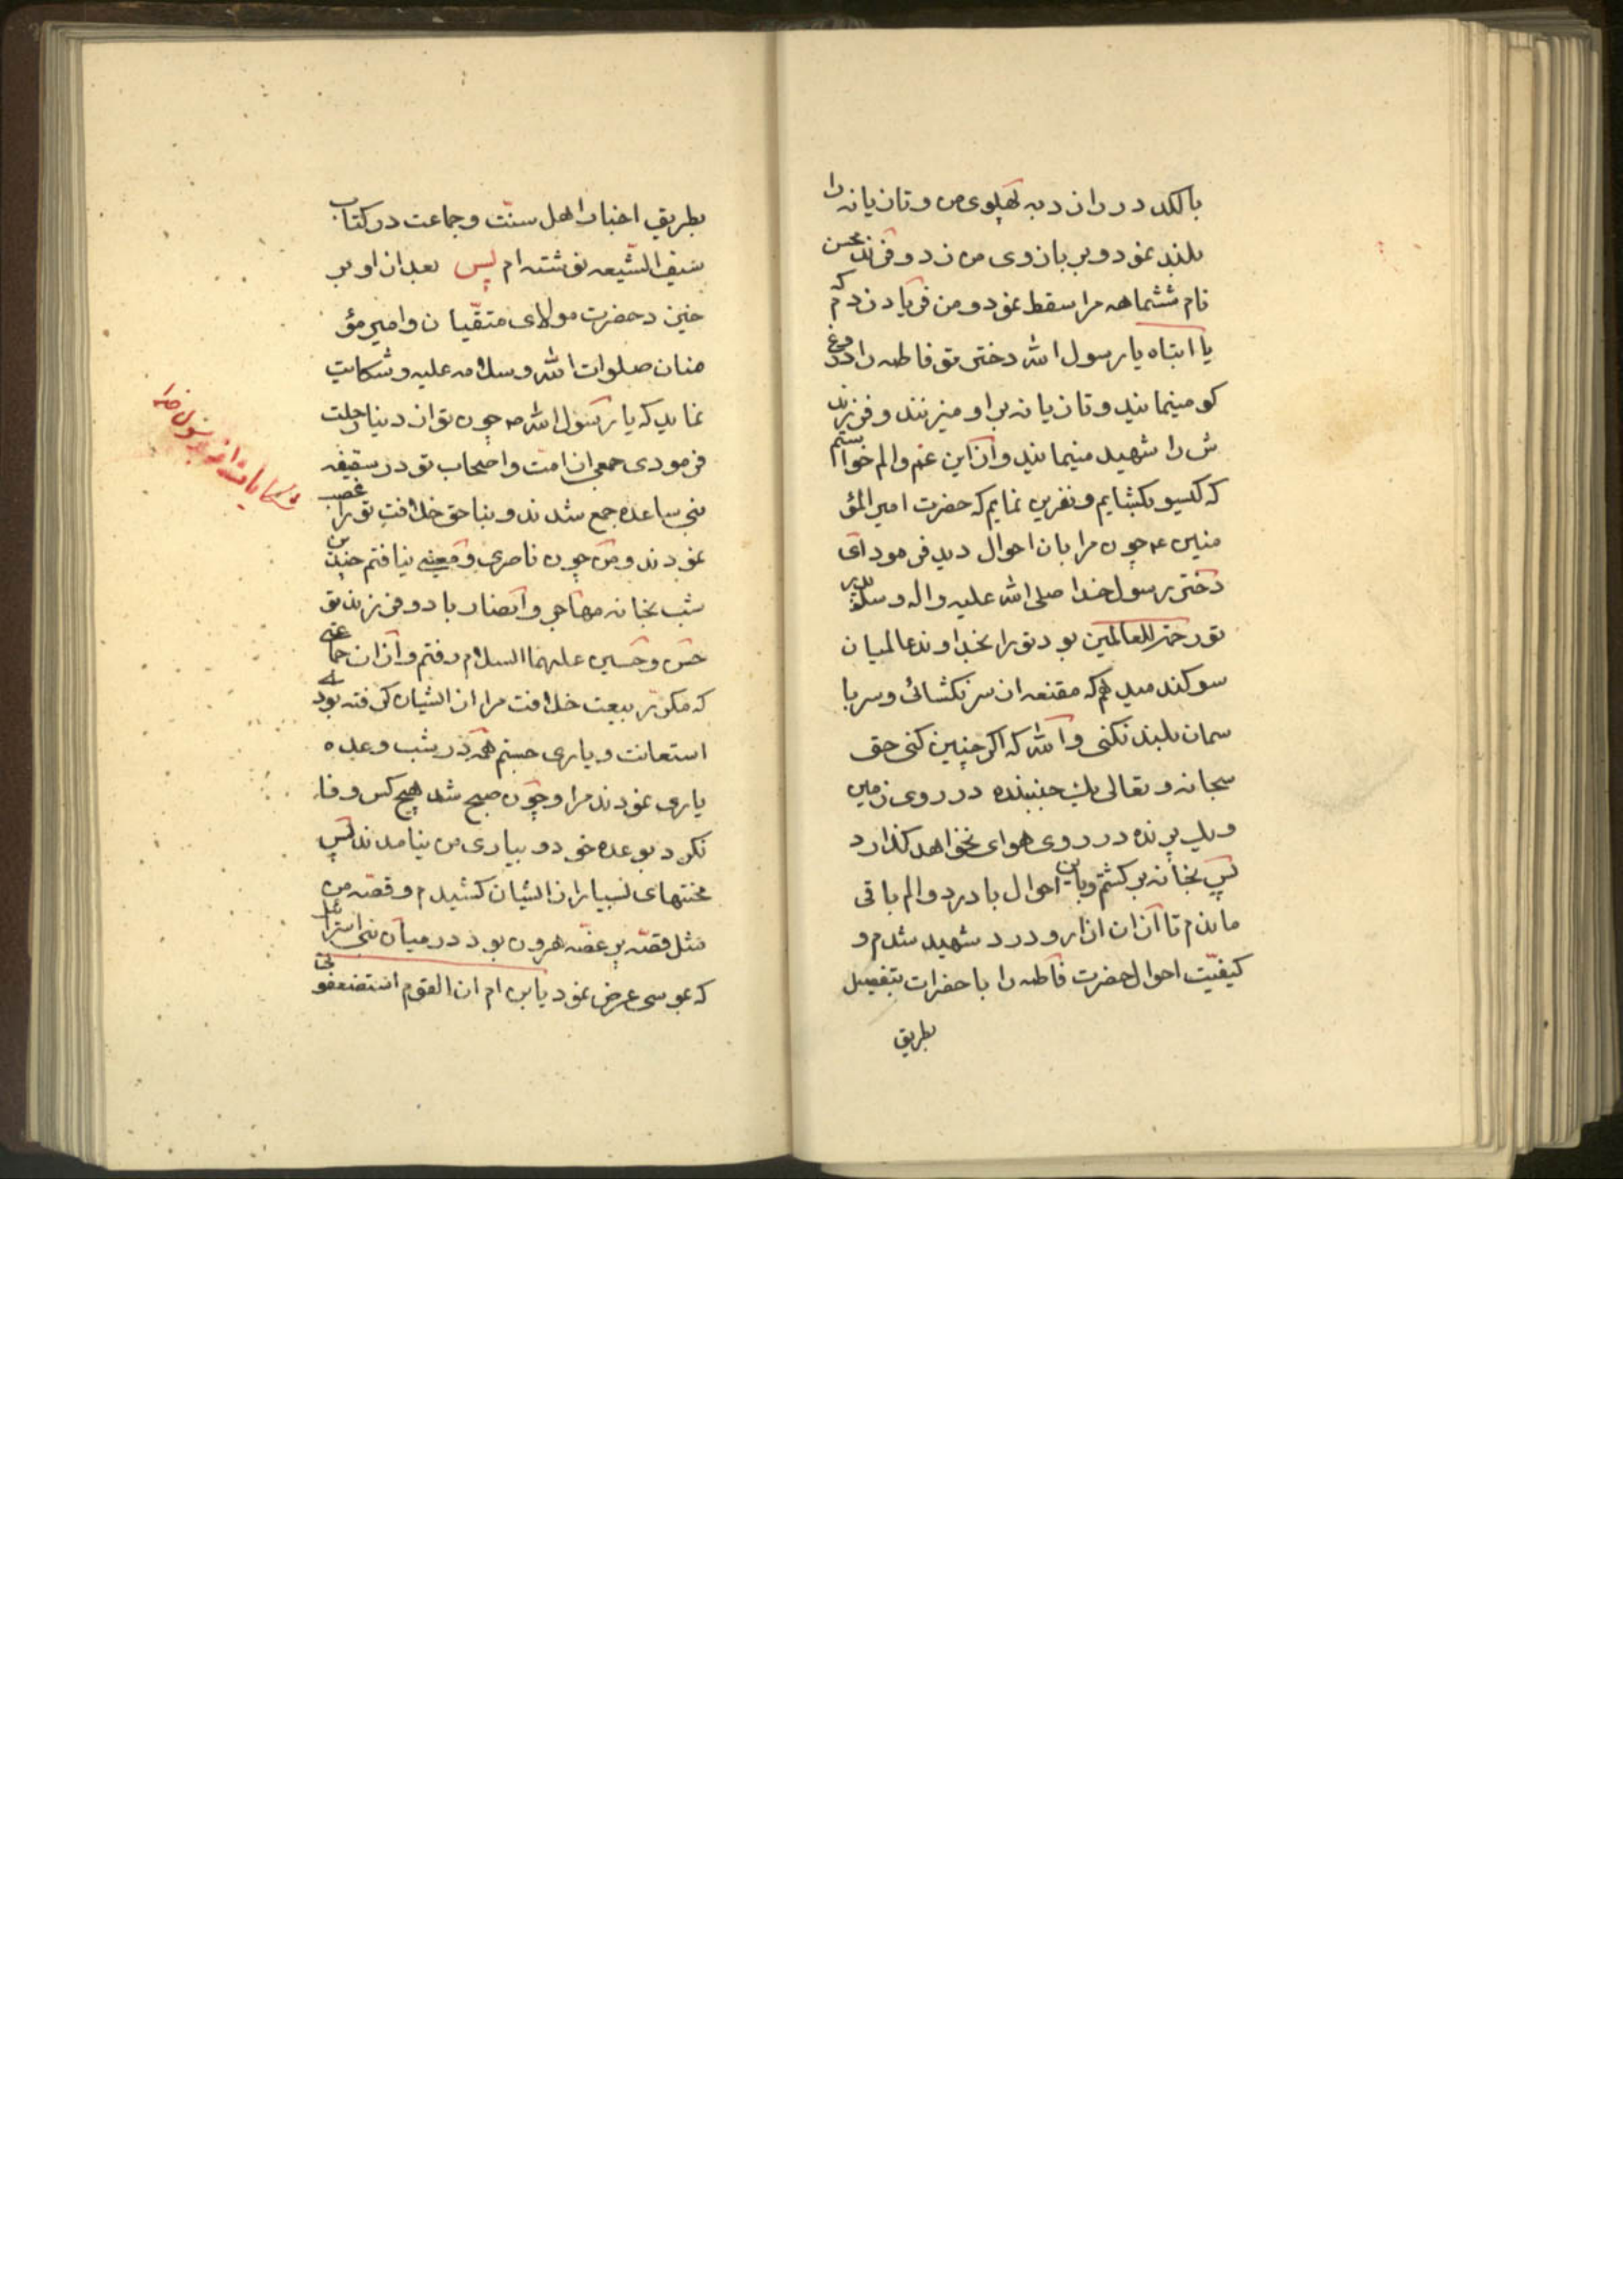 بالکد در را زد به پهلوی من و تازیانه را
بلند نمود و بر بازوی من زد و فرزند محسن
نام ششماهه مرا سقط نمود و من فریاد زدم که
یا ابتاه یا رسول الله دختر تو فاطمه را دروغ
کو مینمایند و تازیانه بر او میزنند و فرزند
ش را شهید مینمایند و از این غم و الم خواستم
که کیسو بکشایم و نفرین نمایم که حضرت امیر المؤ
منین ع چون مرا بان احوال دید فرمود ای
دختر رسول خدا صلی الله علیه و اله و سلم پدر
تو رحمة للعالمین بود تو را بخداوند عالمیان
سوکند میدهم که مقنعه از سر نکشائی و سر با
سمان بلند نکنی والله که اکر چنین کنی حق
سبحانه و تعالی یک جنبنده در روی زمین
و یک پرنده در روی هوای نخواهد کذارد
پس بخانه بر کشتم و باین احوال با درد و الم باقی
ماندم تا از ان ازار و درد شهید شدم و
کیفیّت احوال حضرت فاطمه را با حضرات بتفصیل
بطریق
بطریق اخبار اهل سنّت و جماعت در کتاب
سیف الشیعه نوشته ام پس بعد از او بر
خیزد حضرت مولای متقیان و امیر مؤ
منان صلوات الله و سلامه علیه و شکایت
نماید که یا رسول الله ص چون تو از دنیا رحلت
فرمودی جمعی از امت و اصحاب تو در سقیفه
بنی ساعده جمع شدند و بناحق خلافت تو را غصب
نمودند و من چون ناصری و معینی نیافتم چندین
شب بخانه مهاجر و انصار با دو فرزند تو
حسن و حسین علیهما السلام رفتم و از ان جماعتی
که مکرّر بیعت خلافت مرا از ایشان کرفته بودی
استعانت و یاری جستم همه در شب وعده
یاری نمودند مرا و چون صبح شد هیچ کس وفا
نکرد بوعده خود و بیاری من نیامدند پس
محنتهای بسیار از ایشان کشیدم و قصّه من
مثل قصّه پر غصّه هرون بود در میان بنی اسرائیل
که بموسی عرض نمود یابن ام ان القوم استضعفونی